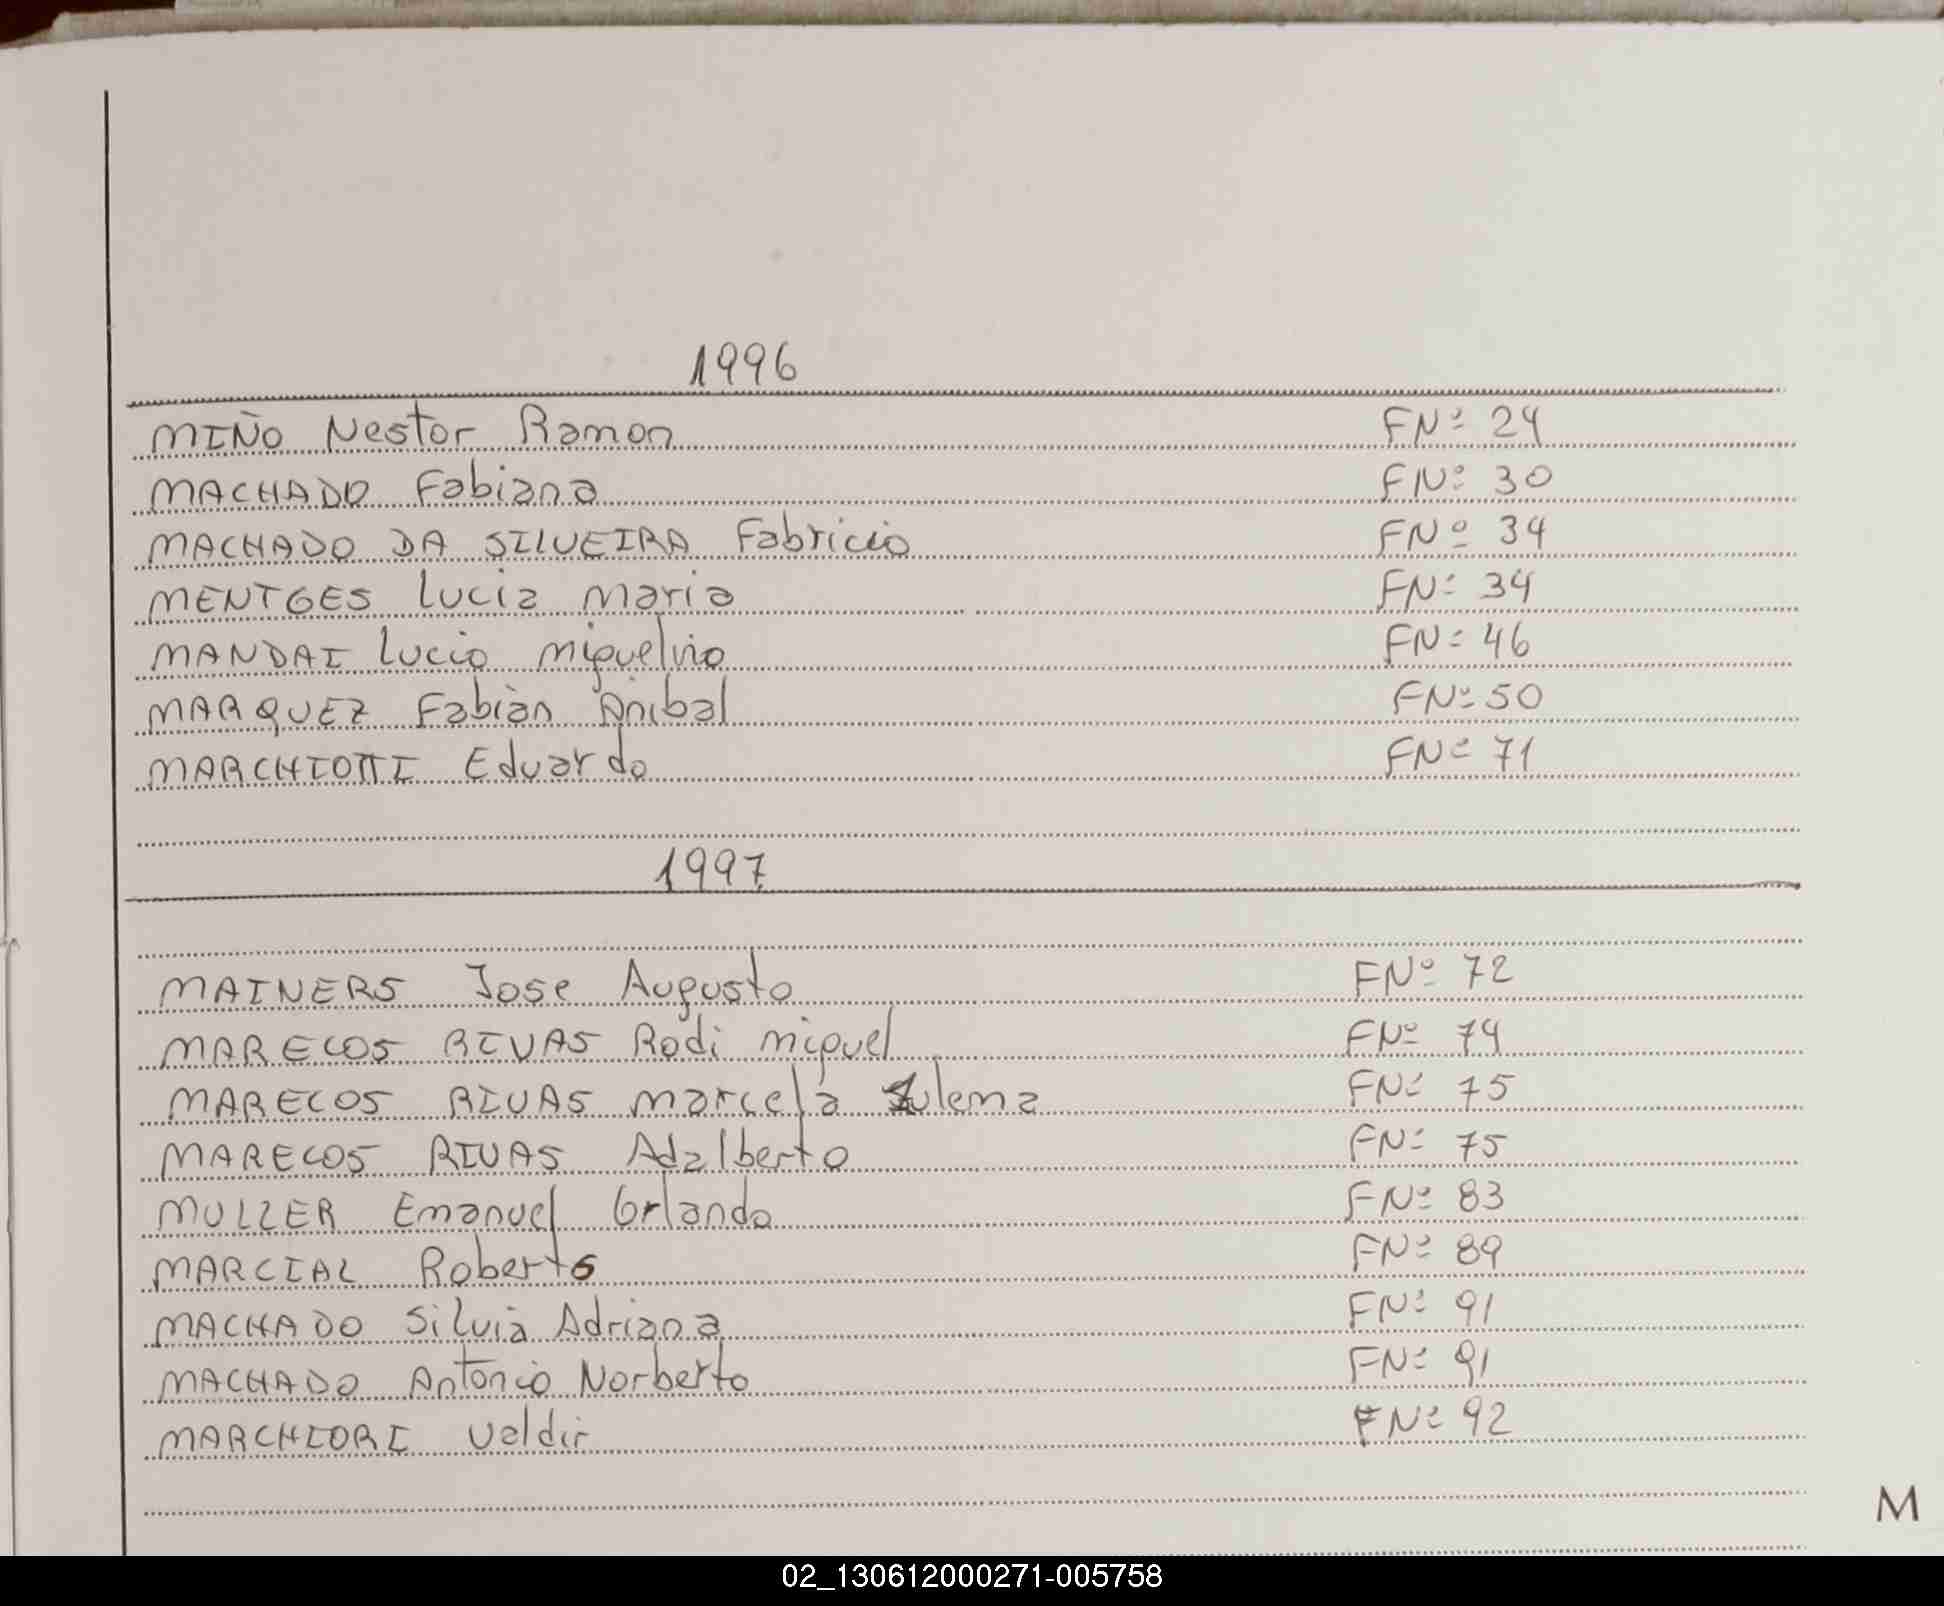 1996
MIÑO Nestor Ramon FNº 24
MACHADO Fabiana FNº 30
MACHADO DA SILVEIRA Fabricio FNº 34
MENTGES Lucia Maria FNº 34
MANDAI Lucio Miguelvio FNº 46
MARQUEZ Fabián Anibal FNº 50
MARCHIOTTI Eduardo FNº 71
1997
MAINERS Jose Augusto FNº 72
MARECOS RIVAS Rodi Miguel FNº 74
MARECOS RIVAS Marcela Zulema FNº 75
MARECOS RIVAS Adalberto FNº 75
MULLER Emanuel Orlando FNº 83
MARCIAL Roberto FNº 89
MACHADO Silvia Adriana FNº 91
MACHADO Antonio Norberto FNº 91
MARCHIORI Valdir FNº 92
M
02_130612000271-005758